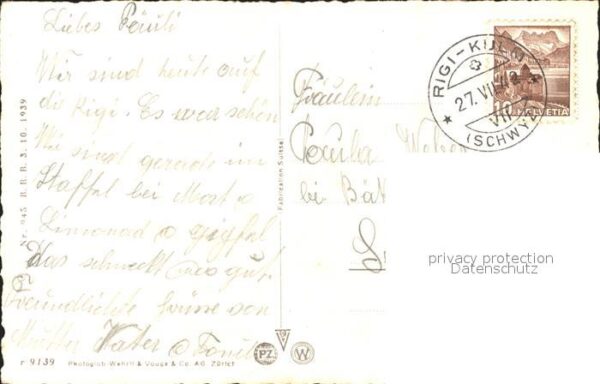 Liebes Päuli
Wir sind heute auf
die Rigi. Es war schön
Wir sind gerade im
Staffel bei Most u
Limonad u Gipfel
Das schmeckt so gut
Freundlichte Grüsse von
Mutter Vater u
Nr. 945 B.R.B. 3.10.1939
r 9139
Photoglob-Wehrli & Vouga & Co. AG. Zürich
PZ
W
Fabrication Suisse
Fräulein
Paula
bei
RIGI-KULM
27.VII.
VII
(SCHWYZ)
10 HELVETIA
privacy protection
Datenschutz